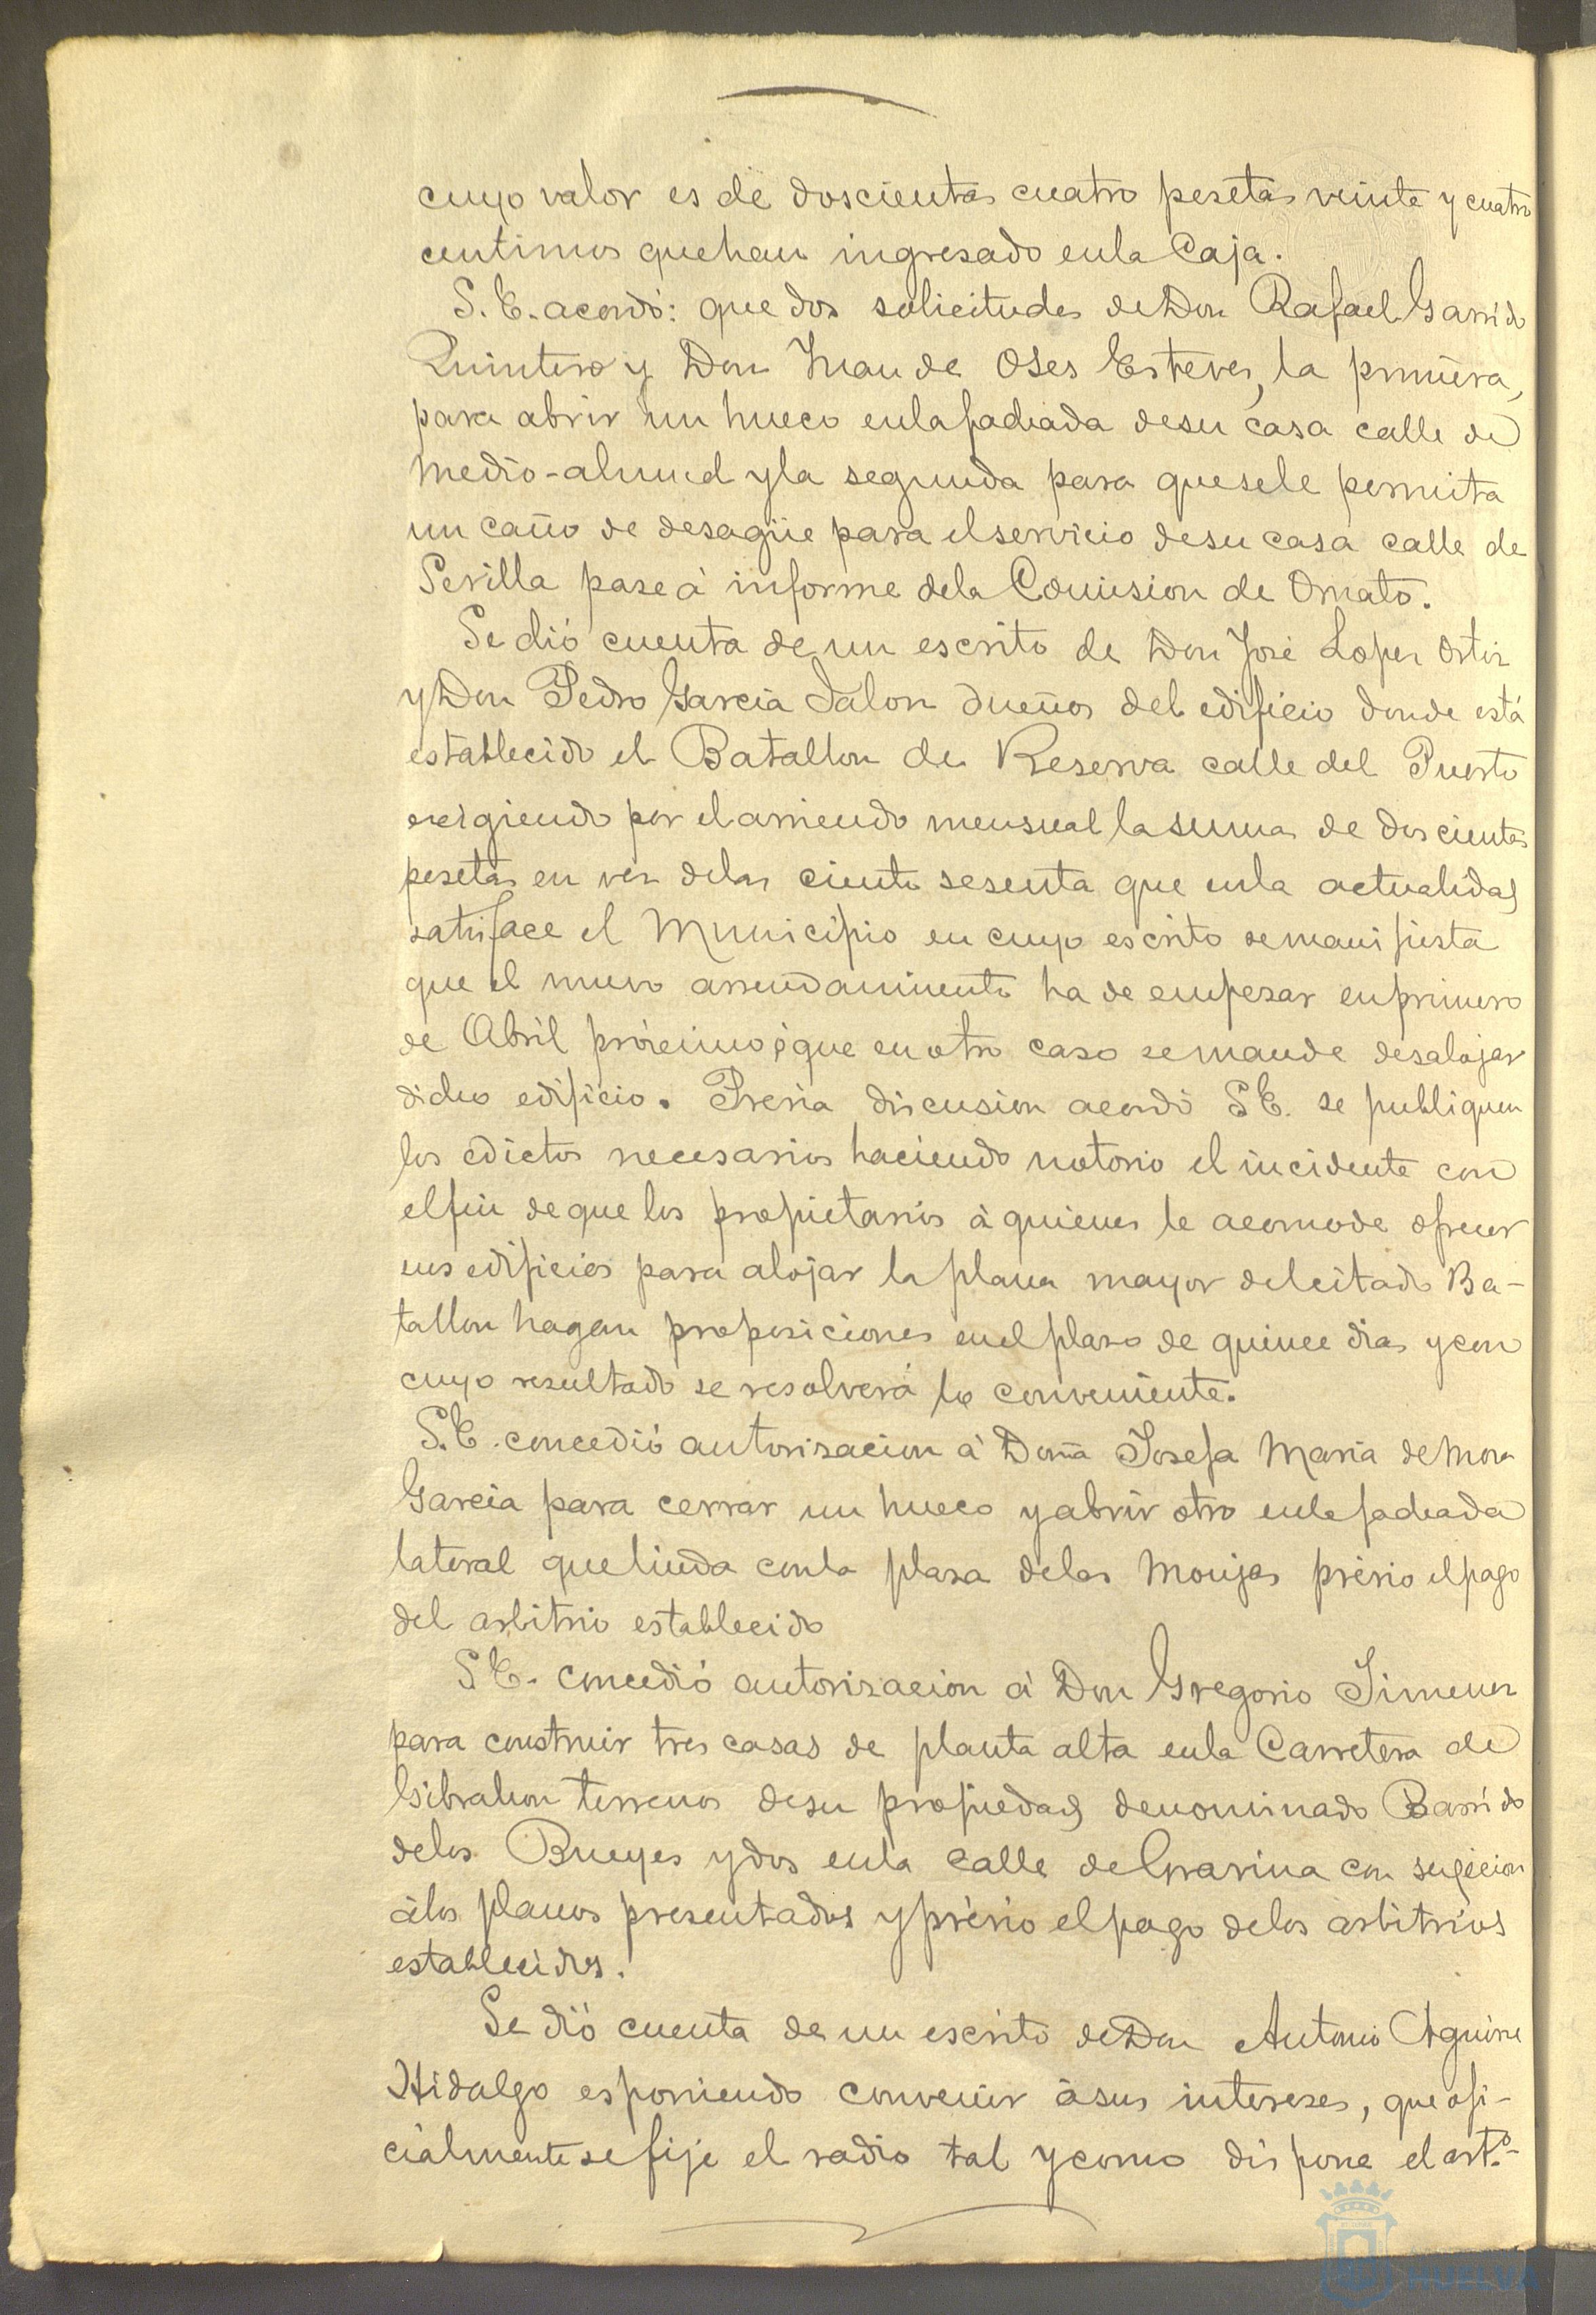 cuyo valor es de doscientas cuatro pesetas veinte y cuatro
centimos que han ingresado en la Caja.
S. E. acordó: que dos solicitudes de Don Rafael Garrido
Quintero y Don Juan de Oses Esteves, la primera,
para abrir un hueco en la fachada de su casa calle de
Medio-almud y la segunda para que se le permita
un caño de desagüe para el servicio de su casa calle de
Sevilla pase á informe de la Comision de Ornato.
Se dió cuenta de un escrito de Don José Lopez Ortiz
y Don Pedro Garcia Jalon dueños del edificio donde está
establecido el Batallon de Reserva calle del Puerto
exigiendo por el arriendo mensual la suma de doscientas
pesetas en vez de las ciento sesenta que en la actualidad
satisface el Municipio en cuyo escrito se manifiesta
que el nuevo arrendamiento ha de empezar en primero
de Abril próximo ó que en otro caso se mande desalojar
dicho edificio. Previa discusion acordó S E. se publiquen
los edictos necesarios haciendo notorio el incidente con
el fin de que los propietarios á quienes le acomode ofrecer
sus edificios para alojar la plana mayor del citado Ba-
tallon hagan proposiciones en el plazo de quince dias y con
cuyo resultado se resolverá lo conveniente.
S. E. concedió autorizacion á Doña Josefa Maria de Mora
Garcia para cerrar un hueco y abrir otro en la fachada
lateral que linda con la plaza de las Monjas prévio el pago
del arbitrio establecido
S E. concedió autorizacion á Don Gregorio Jimenez
para construir tres casas de planta alta en la Carretera de
Gibraleon terrenos de su propiedad denominado Barrido
de los Bueyes y dos en la calle de Gravina con sugecion
á los planos presentados y prévio el pago de los arbitrios
establecidos.
Se dió cuenta de un escrito de Don Antonio Aguirre
Hidalgo esponiendo convenir á sus intereses, que ofi-
cialmente se fije el radio tal y como dispone el art.º
HUELVA